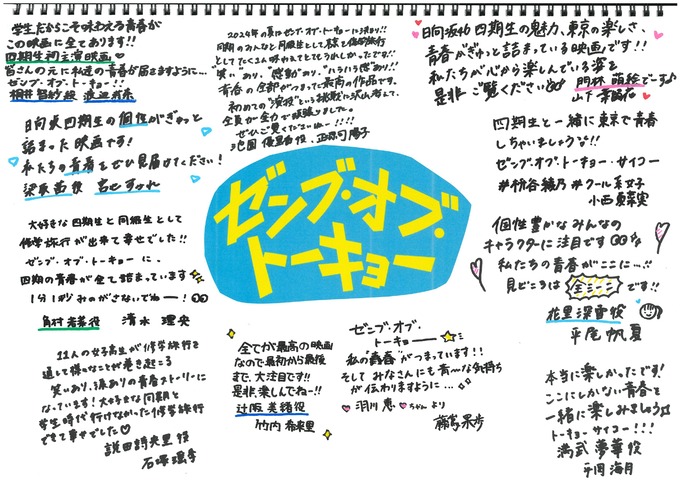 学生だからこそ味わえる青春が
この映画に全てあります!!
四期生初主演映画♡
皆さんの元に私達の青春が届きますように…
ゼンブ・オブ・トーキョー!!
桐井智紗役 渡辺莉奈
2024年の夏はゼンブ・オブ・トーキョーに決まり!!
同期のみんなと同級生として東京で修学旅行
としてたくさん
"笑い"あり、"感動"あり、"ハラハラ感"あり!!
青春の全部がつまった最高の作品です。
初めての"演技"という挑戦に沢山考えて、
全員が全力で頑張りました。
ぜひご覧くださーぬー!!!!
池園優里香役、正源司陽子
日向坂46四期生の魅力、東京の楽しさ、
青春がぎゅっと詰まっている映画です!!
私たちが心から楽しんでいる姿を
是非ご覧ください
門林萌絵でーす♪
山下葉留花
日向坂四期生の個性がぎゅっと
詰まった映画です!
私たちの青春をぜひ見届けてください!
梁取茜役 宮地すみれ
四期生と一緒に東京で青春
しちゃいましょうな!!
ゼンブ・オブ・トーキョー・サイコー
#桝谷綾乃#クール系女子
小西夏菜実
ゼンブ・オブ・
トーキョー
大好きな四期生と同級生として
修学旅行が出来て幸せでした!!
ゼンブ・オブ・トーキョーに、
四期の青春が全て詰まっています
1分1秒みのがさないでねー!
角村若菜役 清水理央
個性豊かなみんなの
キャラクターに注目です
私たちの青春がここに…!!
見どころは全シーンです!!
花里深雪役
平尾帆夏
11人の女子高生が修学旅行を
通して様々なことが巻き起こる
笑いあり、涙ありの青春ストーリーに
なっています!大好きな同期と
学生時代行けなかった修学旅行
できて幸せでした♡
説田詩央里役
石塚瑶季
全てが最高の映画
なので最初から最後
まで、大注目です!!
是非、楽しんでねー!!
辻坂美緒役
竹内希来里
ゼンブ・オブ・
トーキョー
私の"青春"がつまっています!!
そしてみなさんにも青〜な気持ち
が伝わりますように…
♡羽川恵♡ちゃんより
藤嶌果歩
本当に楽しかったです!
ここにしかない青春を
一緒に楽しみましょう♫
トーキョーサイコー!!!
満武夢華役
平岡海月